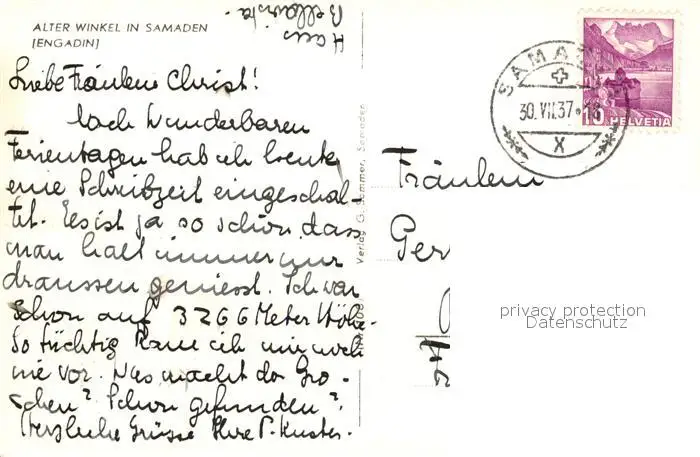 ALTER WINKEL IN SAMADEN
(ENGADIN)
Haus
Bellavista.
Liebe Fräulein Christ!
Nach wunderbaren
Ferientagen hab ich heute
eine Schreibzeit eingeschal-
tet. Es ist ja so schön dass
man halt immer nur
draussen geniesst. Ich war
schon auf 3266 Meter Höhe.
So tüchtig kam ich mir noch
nie vor. Was macht der Gro-
schen? Schon gefunden?
Herzliche Grüsse Ihre P. Kuster.
Verlag G. Sommer, Samaden
SAMADEN
30. VII. 37
X
10 HELVETIA
Fräulein
Ger
privacy protection
Datenschutz